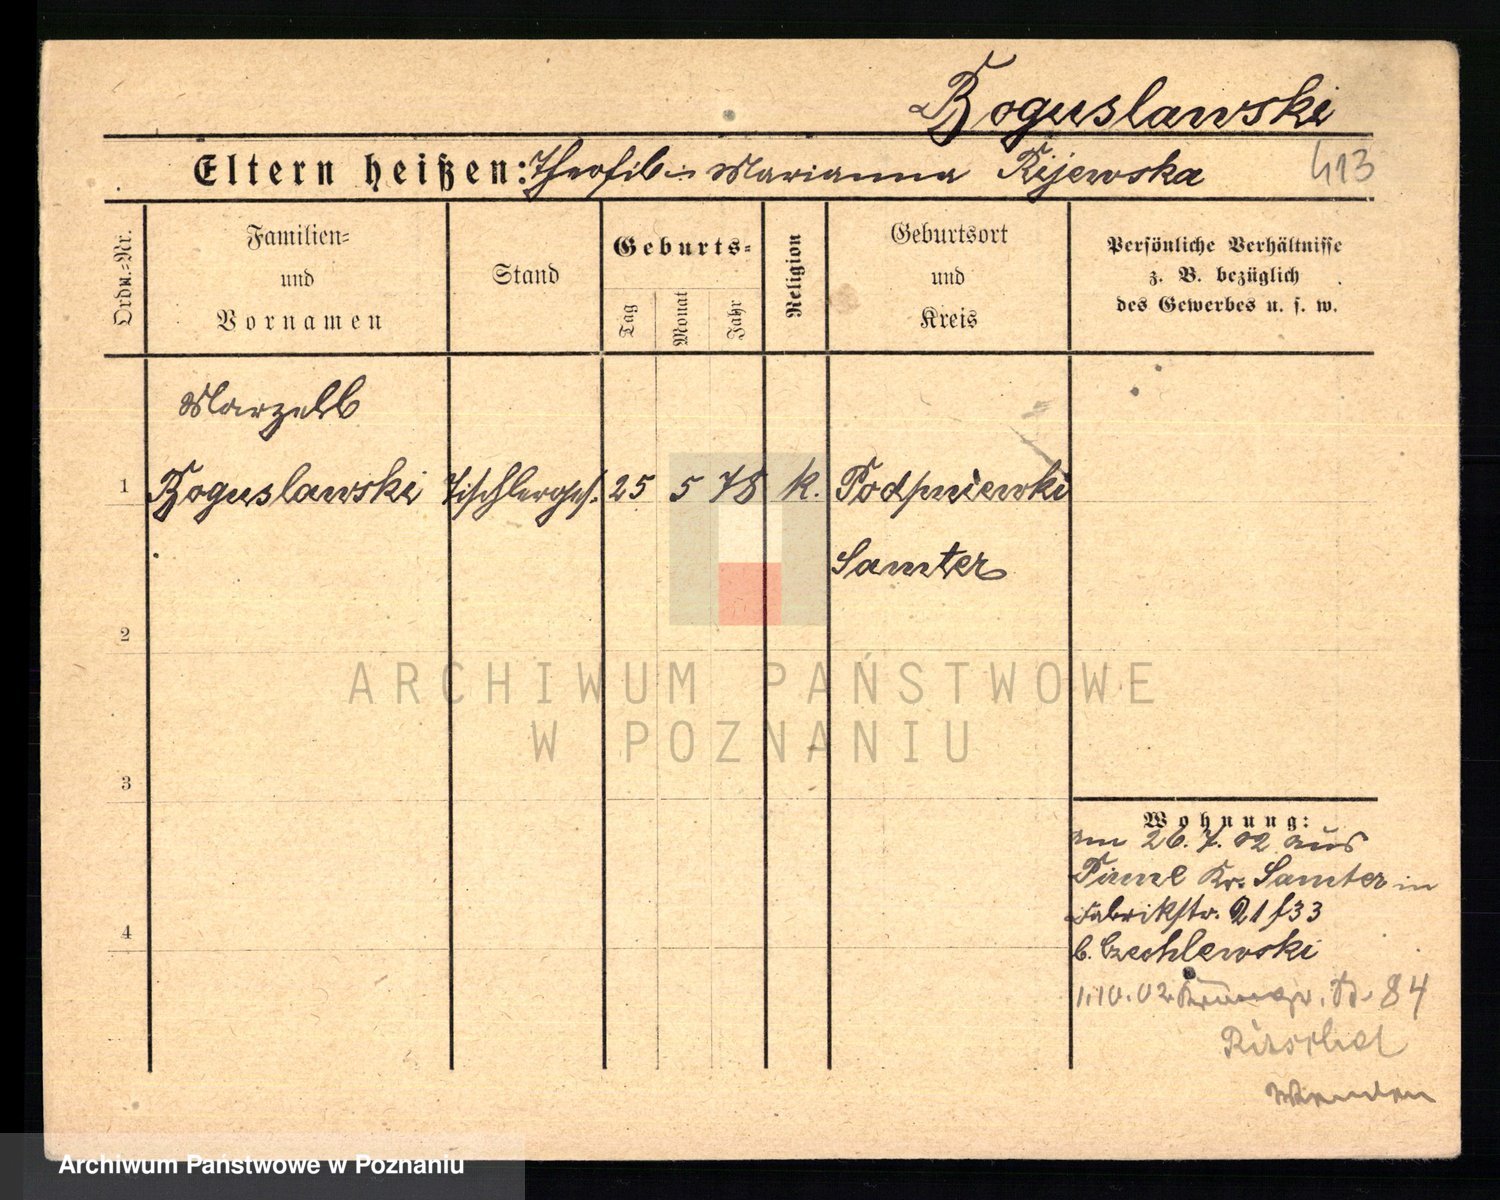 Boguslawski
Eltern heißen: Theofil u. Marianna Kijewska
413
Ordn.-Nr.
Familien-
und
Vornamen
Stand
Geburts-
Tag
Monat
Jahr
Religion
Geburtsort
und
Kreis
Persönliche Verhältnisse
z. B. bezüglich
des Gewerbes u. s. w.
Marzell
1 Boguslawski Tischlerges. 25 5 78 k. Podpniewki
Samter
2
3
4
Wohnung:
am 26. 7. 02 aus
Kr. Samter in
Fabrikstr. 21/33
b. Czechlewski
1.10.02 84
Wenden
ARCHIWUM PAŃSTWOWE
W POZNANIU
Archiwum Państwowe w Poznaniu